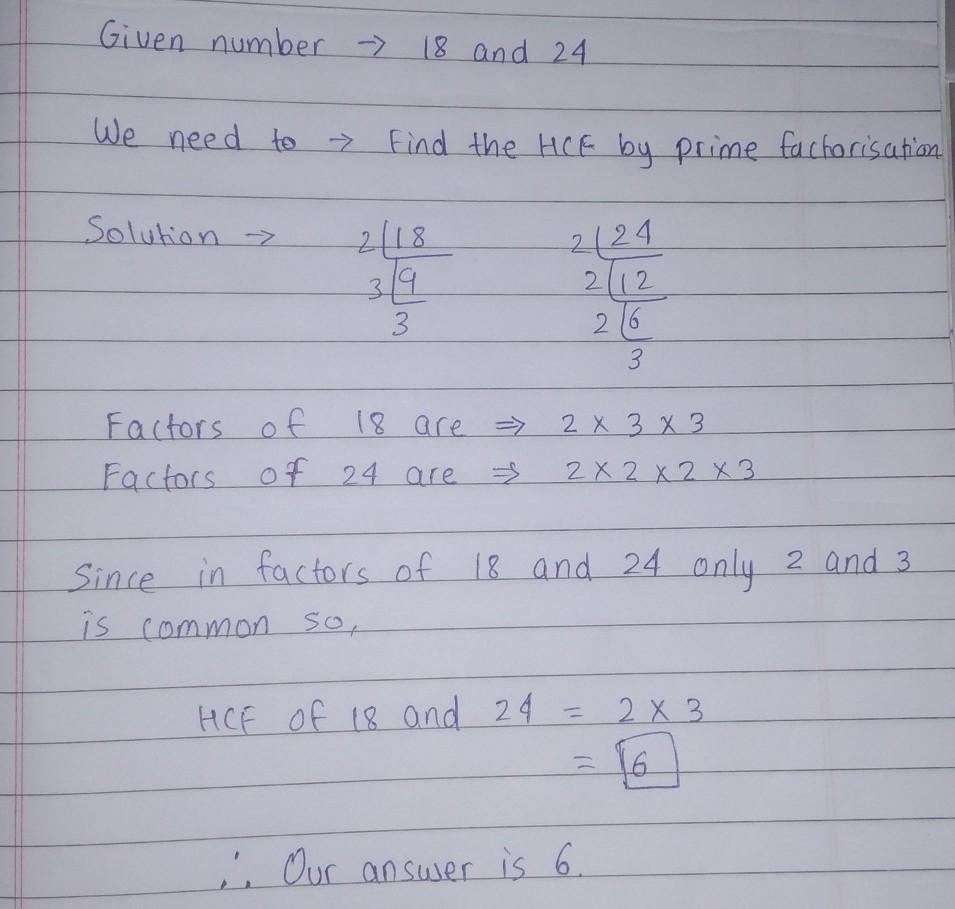 Given number → 18 and 24
We need to → Find the HCF by prime factorisation
Solution → 2|18 2|24
3|9 2|12
3 2|6
3
Factors of 18 are ⇒ 2 × 3 × 3
Factors of 24 are ⇒ 2 × 2 × 2 × 3
Since in factors of 18 and 24 only 2 and 3
is common so,
HCF of 18 and 24 = 2 × 3
= 6
∴ Our answer is 6.